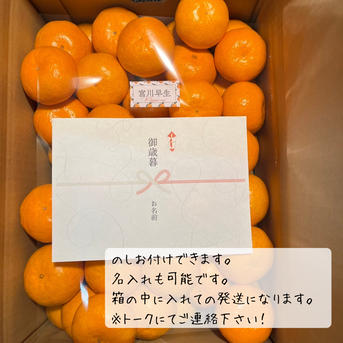 宮川早生
御歳暮
お名前
のしお付けできます。
名入れも可能です。
箱の中に入れての発送になります。
※トークにてご連絡下さい!